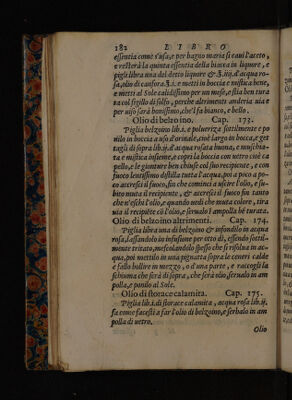 182 LIBRO
essentia come s'usa, e per bagno maria si cavi l'aceto,
e resterà la quinta essentia della biacca in liquore, e
pigli libra una del detto liquore & ℥.iiij. d'acqua ro-
sa, olio di canfora ℥.i. e metti in boccia e mistica bene,
e metti al Sole caldissimo per un mese, e stia ben tura
ta col sigillo di solfo, perche altrimenti anderia uia e
per uiso sarà bonissimo, che'l fa bianco, e bello.
Olio di belzoino. Cap. 173.
Piglia belzoino lib.i. e poluerizza sottilmente e po
nilo in boccia a collo storto, e largo in bocca, e get
tagli di sopra lib.ij. d'acqua rosata buona, e muschia-
ta e mistica insieme, e copri la boccia con uetro cieco
pello, e le gionture ben chiuse col suo recipiente, e con
fuoco lentissimo distilla tutta l'acqua, poi a poco a po-
co accresci il fuoco, fin che cominci a uscire l'olio, e su-
bito muta il recipiente, & accresci il fuoco fin tanto
che n'eschi l'olio, e quando uedi che muta colore, tira
uia il recipiẽte cõ l'olio, e serualo ĩ ampolla bẽ turata.
Olio di belzoino altrimenti. Cap. 174.
Piglia libra una di belzoino & infondilo in acqua
rosa, lassandolo in infusione per otto dì, essendo sottil-
mente tritato, mescolandolo spesso che si risolua in ac-
qua, poi mettilo in una pignatta sopra le ceneri calde
e fallo bollire in mezzo, o d'una parte, e raccogli la
schiuma che serà di sopra, che serà olio, serualo in am
polla, e ponilo al Sole.
Olio di storace calamita. Cap. 175.
Piglia lib.i. di storace calamita, acqua rosa lib.ij.
fa come facesti a far l'olio di belzoino, e serbalo in am
polla di uetro.
Olio